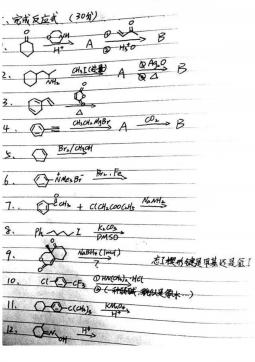 一、完成反应式 (30分)
1. O NH H⁺ A ① O ② H₃⁺O B
2. NH₂ CH₃I(过量) A ① Ag₂O ② △ B
3. △
4. CH₃CH₂MgBr A CO₂ B
5. Br₂/CH₃OH
6. N⁺Me₃Br⁻ Br₂, Fe
7. O CCH₃ + ClCH₂COOC₂H₅ NaNH₂
8. Ph I K₂CO₃ DMSO
9. O O NaBH₄ (1mol) ?
10. Cl CF₃ ① HN(CH₃)₂·HCl ②
11. C(CH₃)₃ KMnO₄ H⁺
12. N OH H⁺